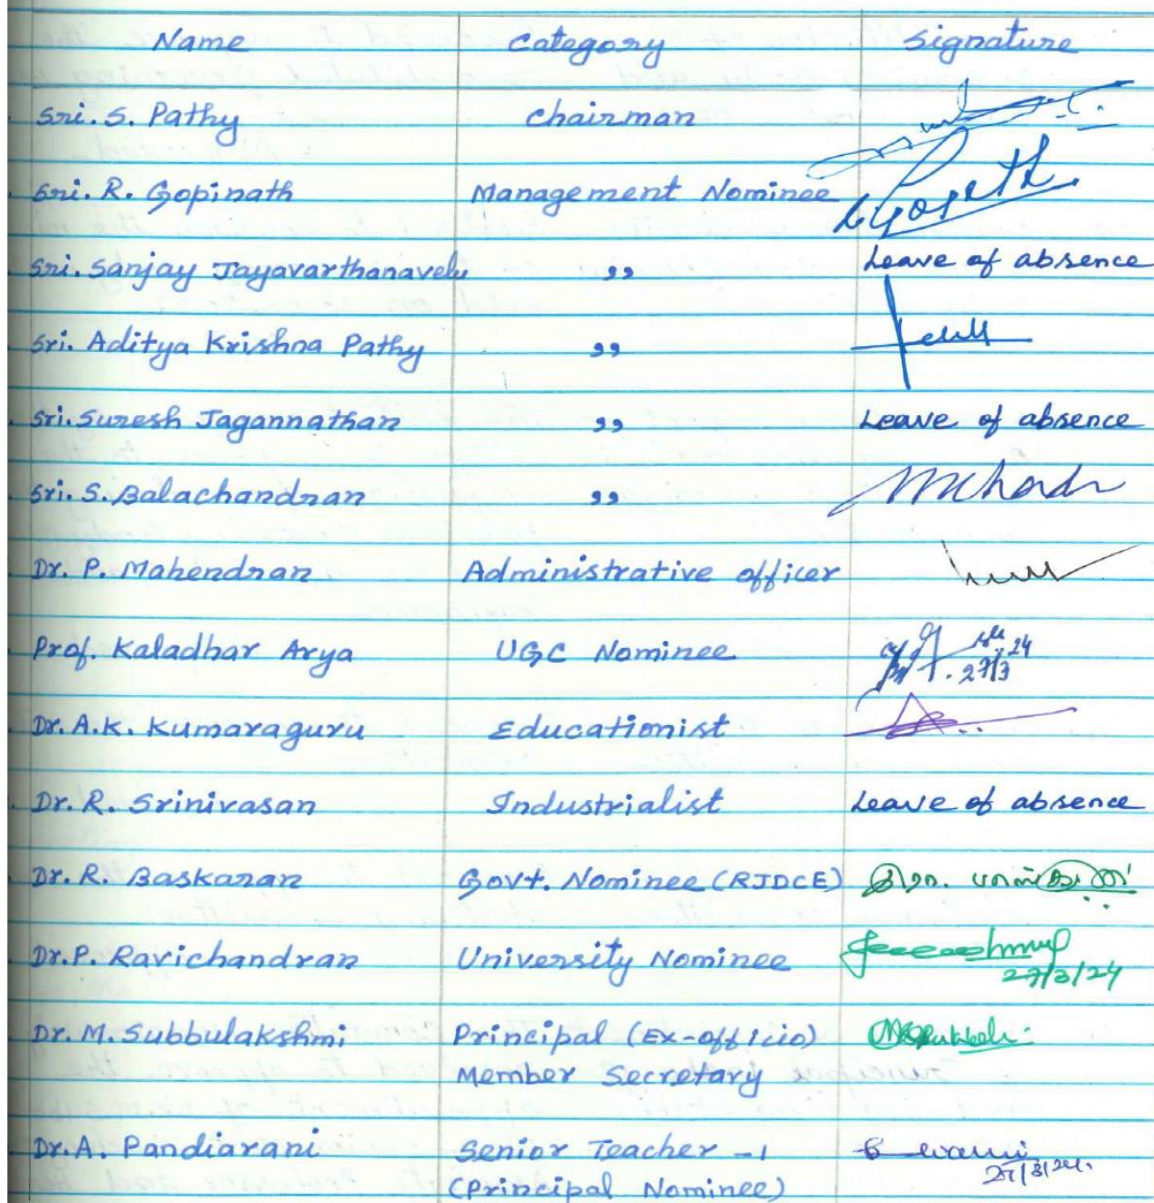 Name Category Signature
Sri. S. Pathy Chairman
Sri. R. Gopinath Management Nominee
Sri. Sanjay Jayavarthanavelu ,, Leave of absence
Sri. Aditya Krishna Pathy ,,
Sri. Suresh Jagannathan ,, Leave of absence
Sri. S. Balachandran ,,
Dr. P. Mahendran Administrative officer
Prof. Kaladhar Arya UGC Nominee
27/3 24
Dr. A.K. Kumaraguru Educationist
Dr. R. Srinivasan Industrialist Leave of absence
Dr. R. Baskaran Govt. Nominee (RJDCE)
Dr. P. Ravichandran University Nominee
27/3/24
Dr. M. Subbulakshmi Principal (Ex-officio)
Member Secretary
Dr. A. Pandiarani Senior Teacher - 1
27/3/24.
(Principal Nominee)